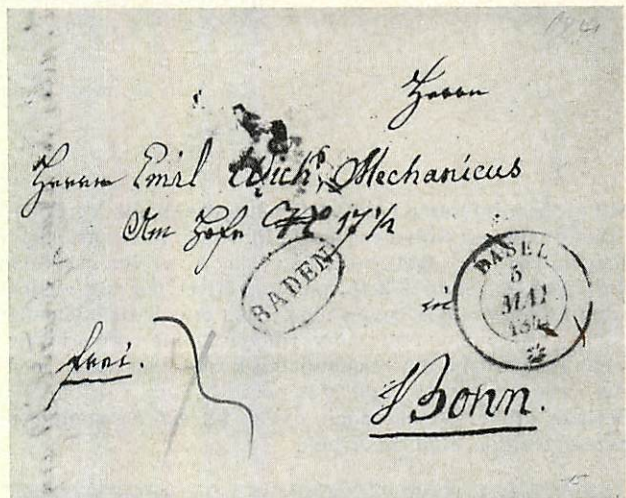 Herrn
Herrn Emil Wich, Mechanicus
Am Hofe No 17 1/2
BADEN
in
BASEL
5
MAI
frei.
Bonn.